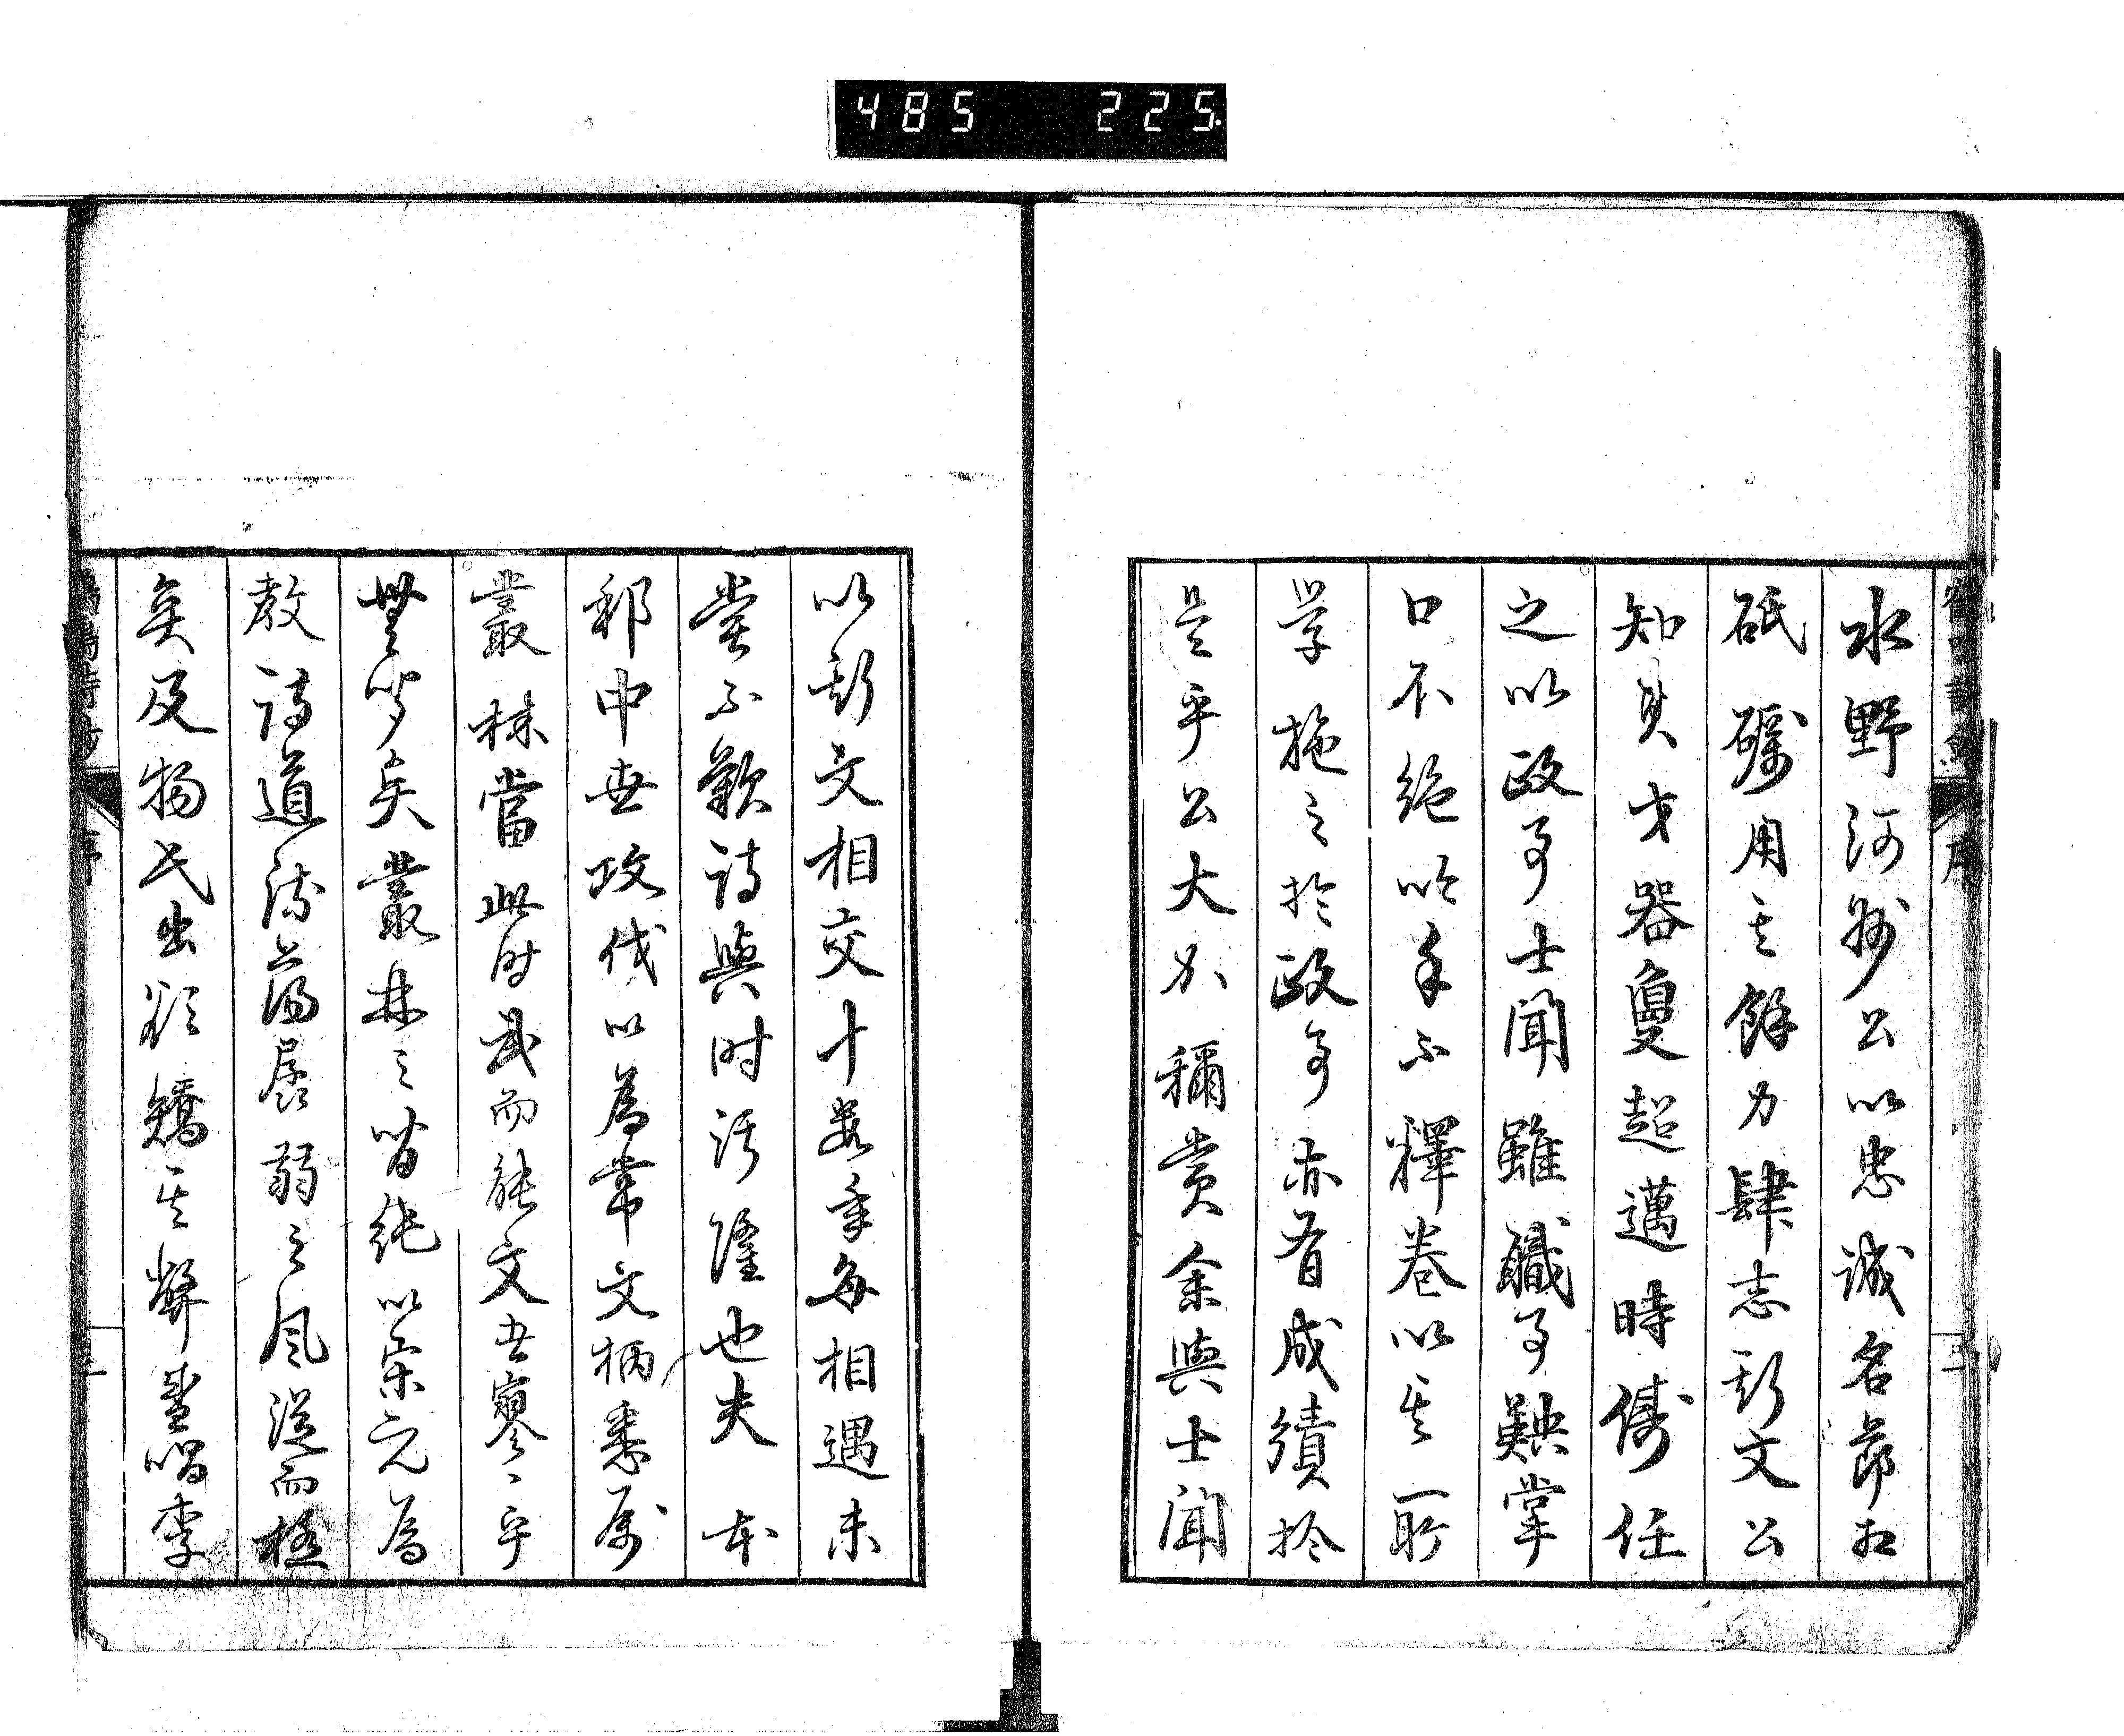 485 225
水野河州公以忠誠名節相
砥礪用其餘力肆志斯文公
知其才器敻超邁時儔任
之以政事士聞雖職事鞅掌
口不絕吟手不釋卷以其所
学施之於政事亦有成績於
是乎公大加稱賞余與士聞
以斯文相交十數年每相遇未
嘗不歎詩與时汚隆也夫本
邦中世攻伐以為常文柄悉属
叢林當此时武而能文者寥々乎
無聞矣叢林之習純以宋元為
教詩道流蕩孱弱之風從而極
矣及物氏出欲矯其弊壹唱李